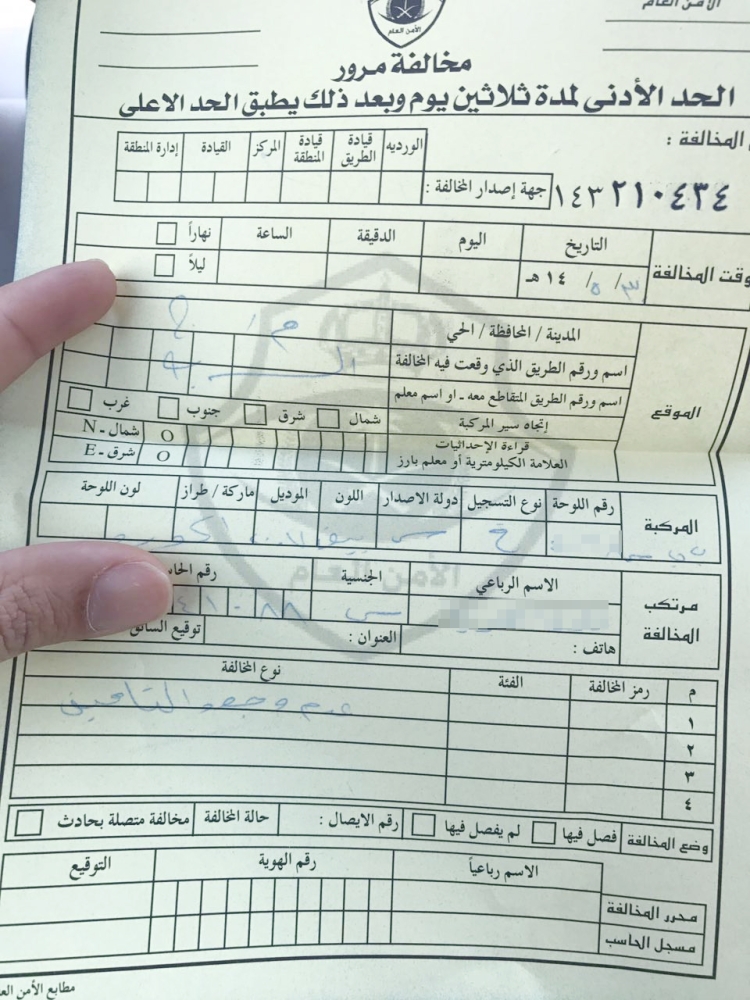 الأمن العام
الأمن العام
مخالفة مرور
الحد الأدنى لمدة ثلاثين يوم وبعد ذلك يطبق الحد الاعلى
المخالفة :
١٤٣٢١٠٤٣٤
الورديه
قيادة الطريق
قيادة المنطقة
المركز
القيادة
إدارة المنطقة
جهة إصدار المخالفة :
وقت المخالفة
التاريخ
اليوم
الدقيقة
الساعة
نهاراً
٣/ ٥/ ١٤ هـ
ليلاً
الموقع
المدينة / المحافظة / الحي
اسم ورقم الطريق الذي وقعت فيه المخالفة
اسم ورقم الطريق المتقاطع معه ـ او اسم معلم
إتجاه سير المركبة
شمال
شرق
جنوب
غرب
قراءة الإحداثيات
العلامة الكيلومترية أو معلم بارز
شمال ـ N
O
شرق ـ E
O
المركبة
رقم اللوحة
نوع التسجيل
دولة الاصدار
اللون
الموديل
ماركة / طراز
لون اللوحة
خ
س
مرتكب المخالفة
الاسم الرباعي
الجنسية
رقم الحا
س
٨٨
هاتف :
العنوان :
توقيع السائق
م
رمز المخالفة
الفئة
نوع المخالفة
١
عدم وجود التامين
٢
٣
٤
وضع المخالفة
فصل فيها
لم يفصل فيها
رقم الايصال :
حالة المخالفة
مخالفة متصلة بحادث
الاسم رباعياً
رقم الهوية
التوقيع
محرر المخالفة
مسجل الحاسب
مطابع الأمن العا